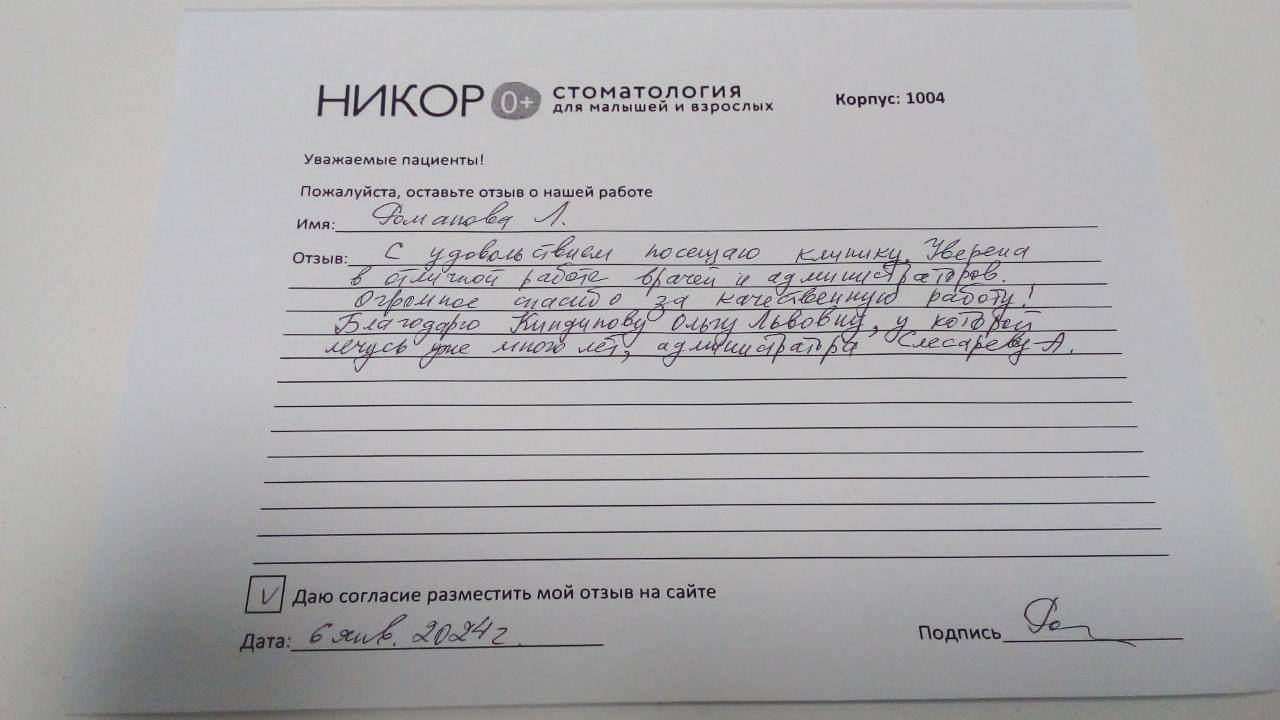 НИКОР 0+ стоматология
для малышей и взрослых
Корпус: 1004
Уважаемые пациенты!
Пожалуйста, оставьте отзыв о нашей работе
Имя: Романова Л.
Отзыв: С удовольствием посещаю клинику. Уверена
в отличной работе врачей и администраторов.
Огромное спасибо за качественную работу!
Благодарю Киндипову Ольгу Львовну, у которой
лечусь уже много лет, администратора Слесареву А.
V Даю согласие разместить мой отзыв на сайте
Дата: 6 янв. 2024 г.
Подпись Ро